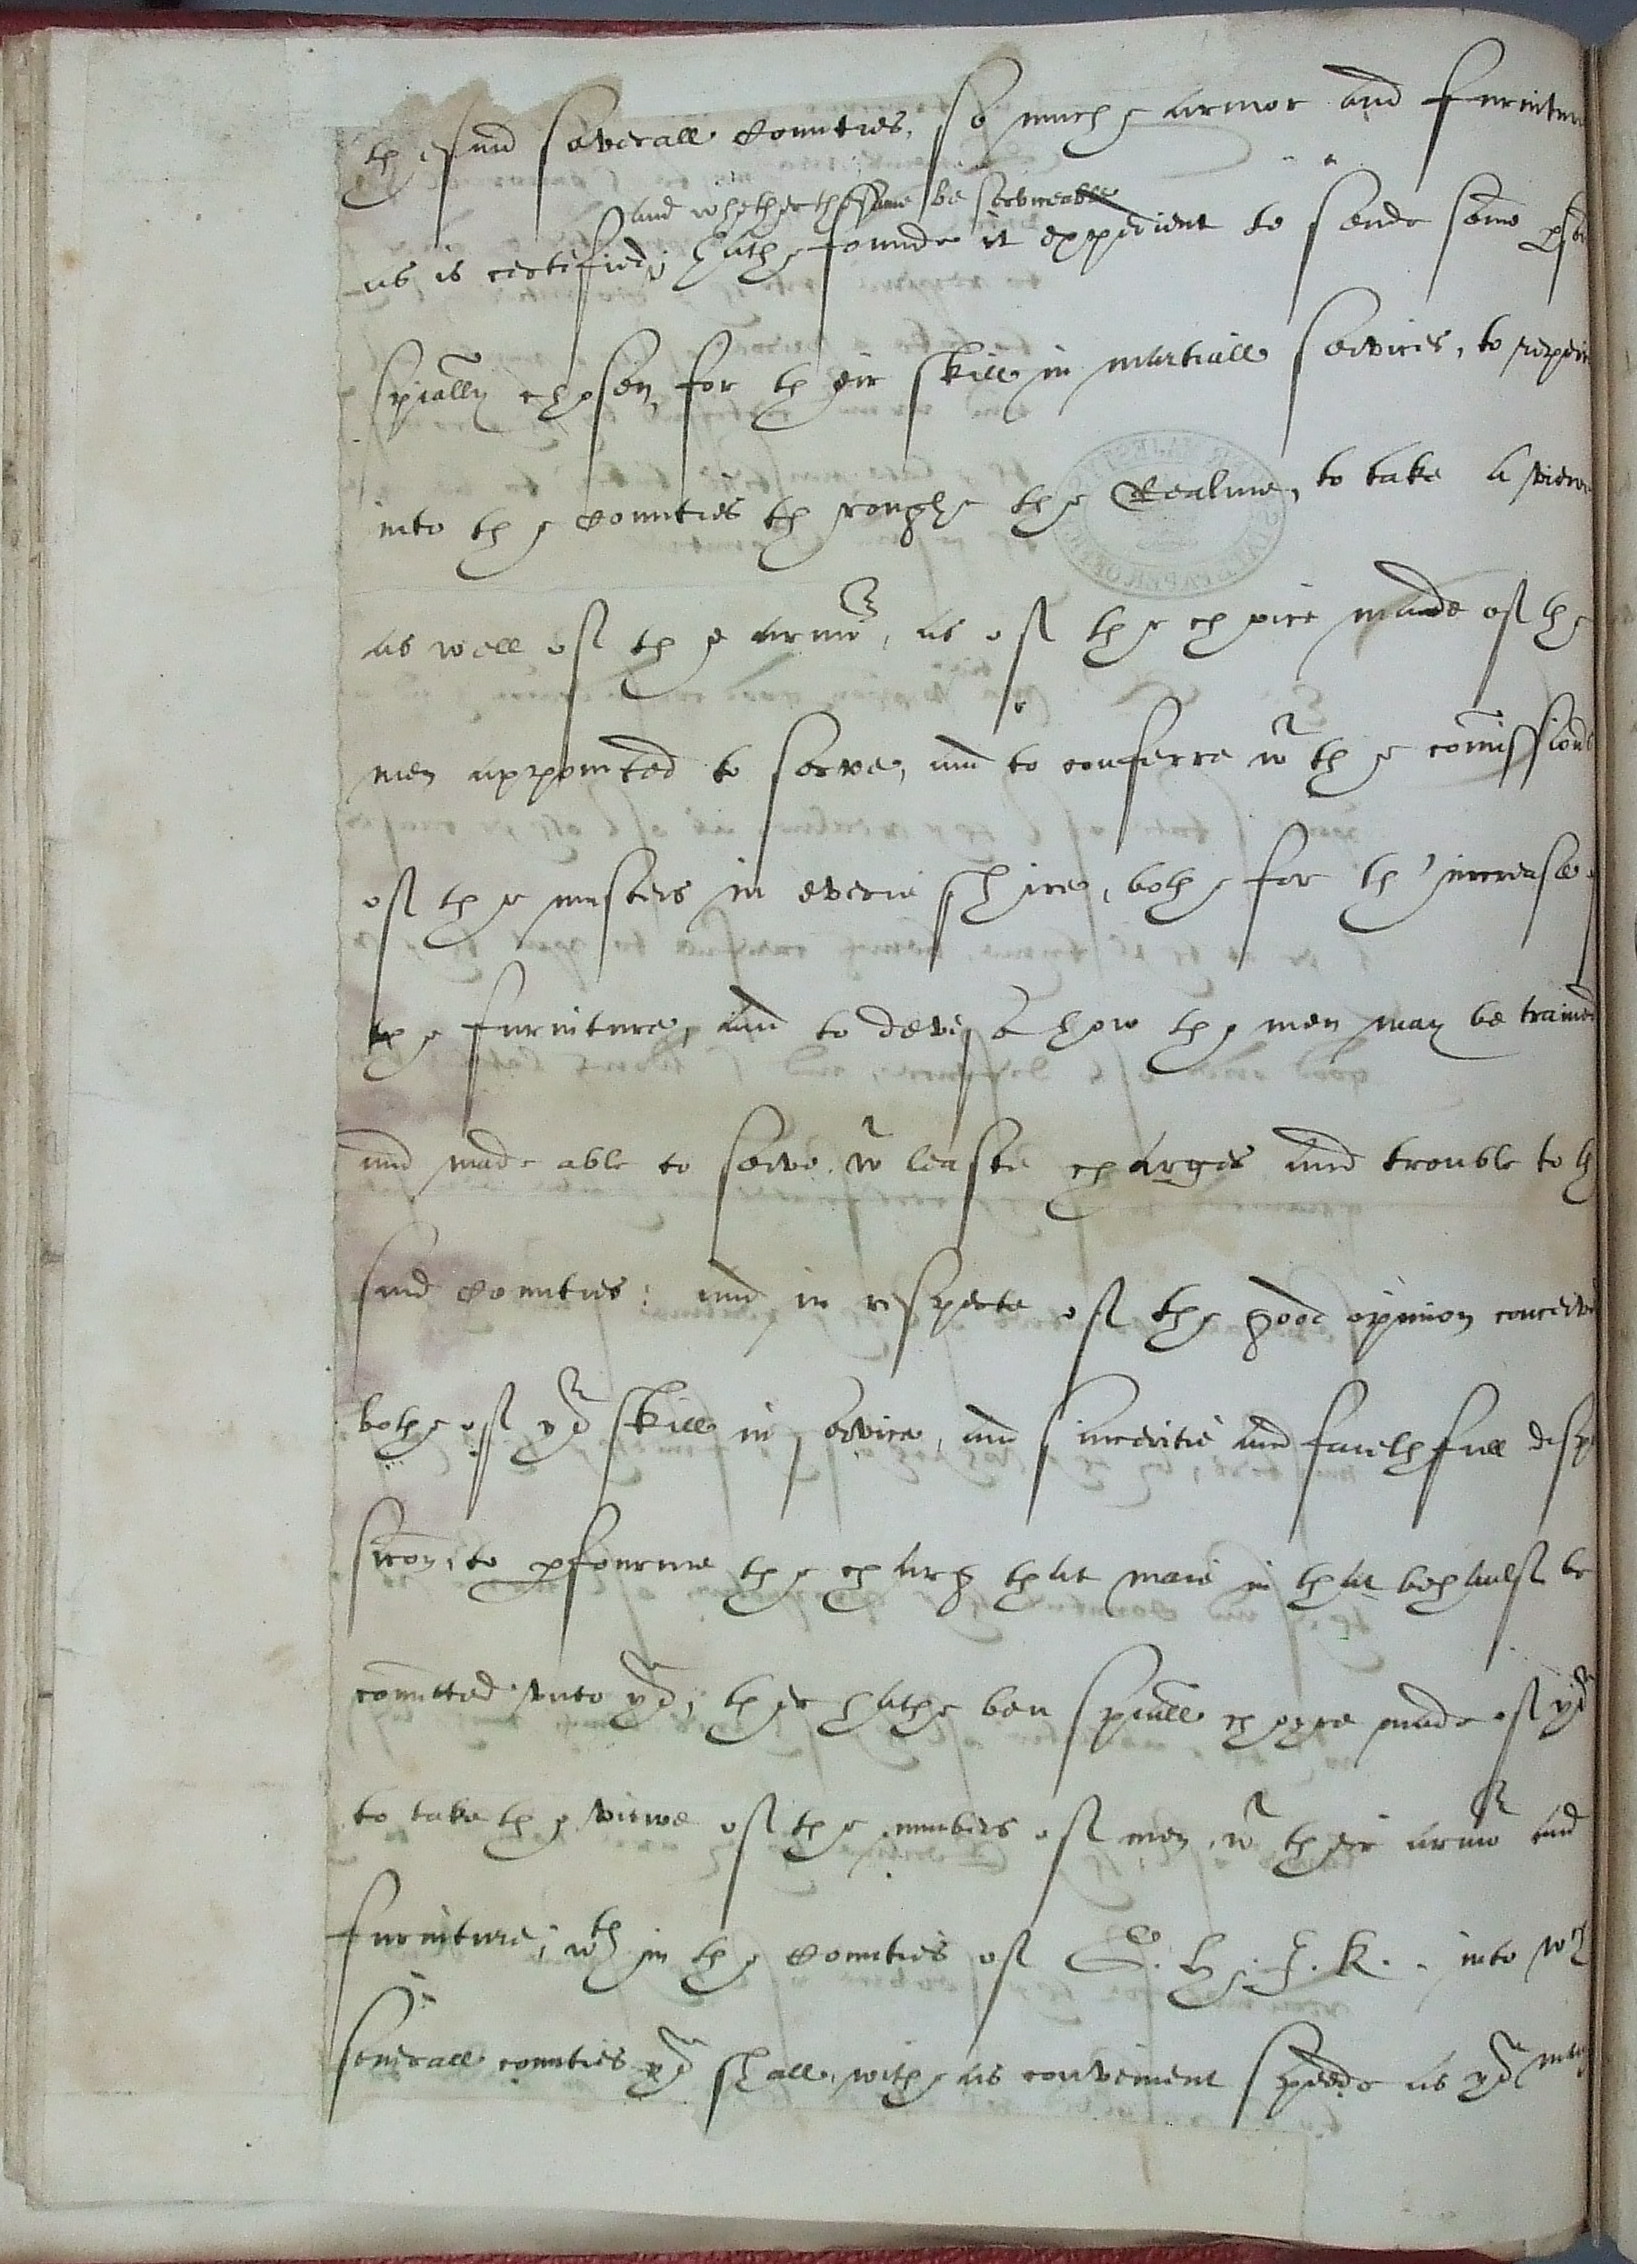 the said severall Counties, so muche armor and furnitur
and whether the same be serviceable
as is certefied; hathe founde it expedient to sende some pso
spially chosen, for their skill in martiall services, to repeir
into the Counties throughe the Realme, to take a viewe
as well of the armor, as of the choice made of the
men appointed to serve, and to conferre wt the comission
of the musters in everie shire, bothe for th'increase
the furniture, and to devise how the men may be trained
and made able to serve wt leaste charges and trouble to th
said Counties: and in respecte of the good opinion conceiv
bothe of yor skill in service, and sinceritie and faithfull dispo
sicon, to pfourme the charg that maie in that behaulf be
comitted unto you, ther hathe ben spiall choyce made of you
to take the viewe of the numbers of men, wt their armor and
furniture; wthin the Counties of G. H. I. K. . into wch
severall counties you shall, withe as convenient speede as you may